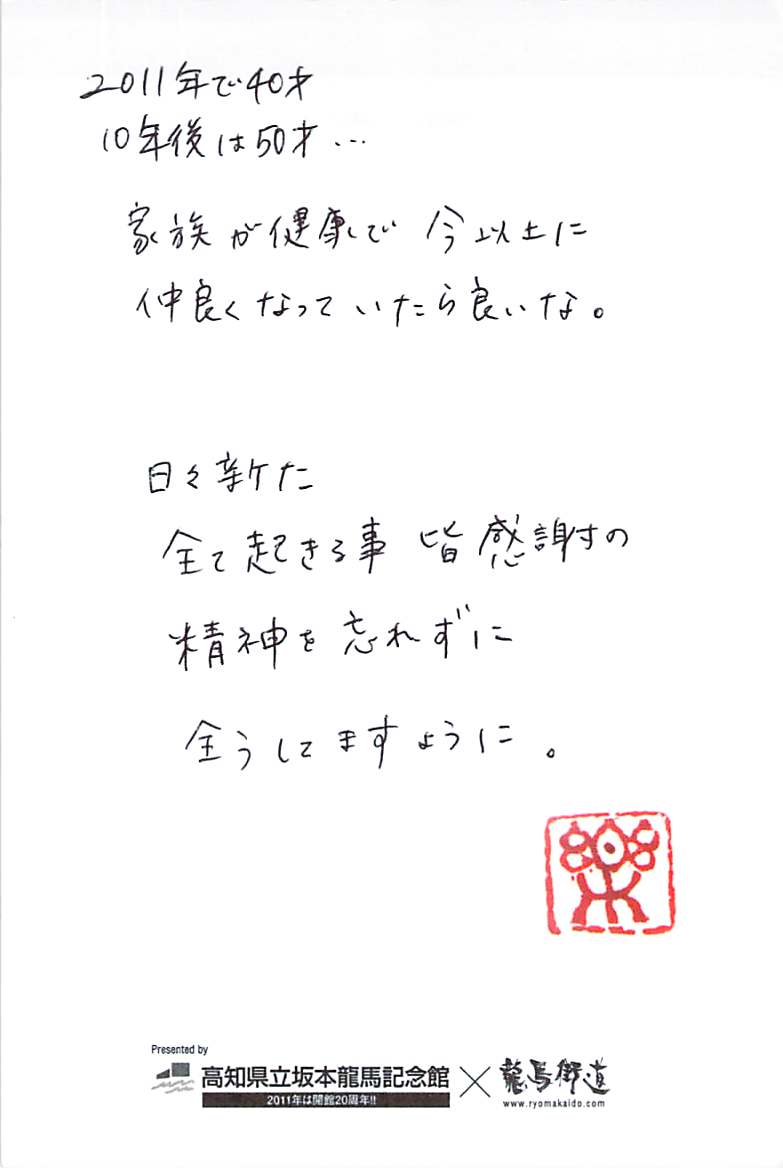 2011年で40才
10年後は50才…
家族が健康で 今以上に
仲良くなっていたら良いな。
日々新た
全て起きる事 皆感謝の
精神を忘れずに
全うしてますように。
樂
Presented by
高知県立坂本龍馬記念館 × 龍馬街道
2011年は開館20周年!!
www.ryomakaido.com